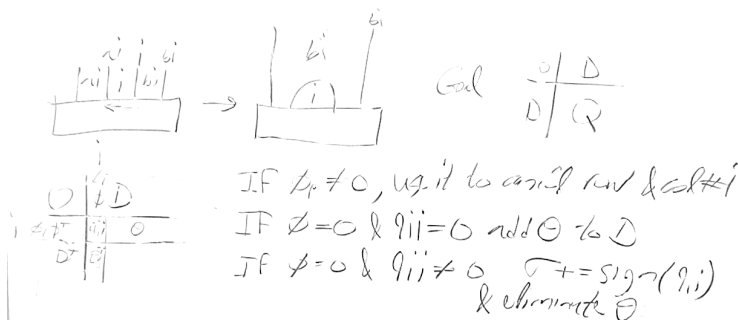 ai i bi
ai i bi
bi
bi
i
Goal
0 D
D Q
i
0 D
If ≠0, use it to cancel row & col #i
If =0 & qii=0 add θ to D
If =0 & qii≠0 σ+=sign(qii)
& eliminate θ